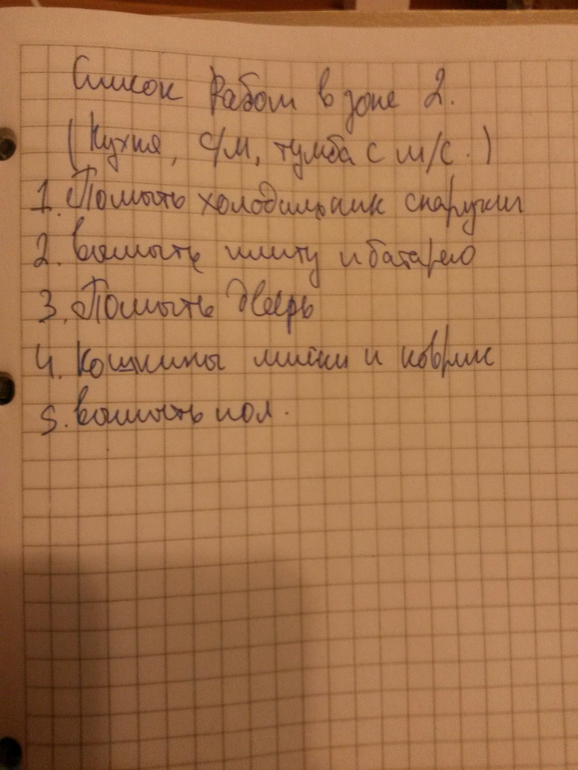 Список работ в зоне 2.
(Кухня, с/м, тумба с м/с.)
1. Помыть холодильник снаружи
2. вымыть плиту и батарею
3. Помыть дверь
4. Кошкины миски и коврик
5. вымыть пол.